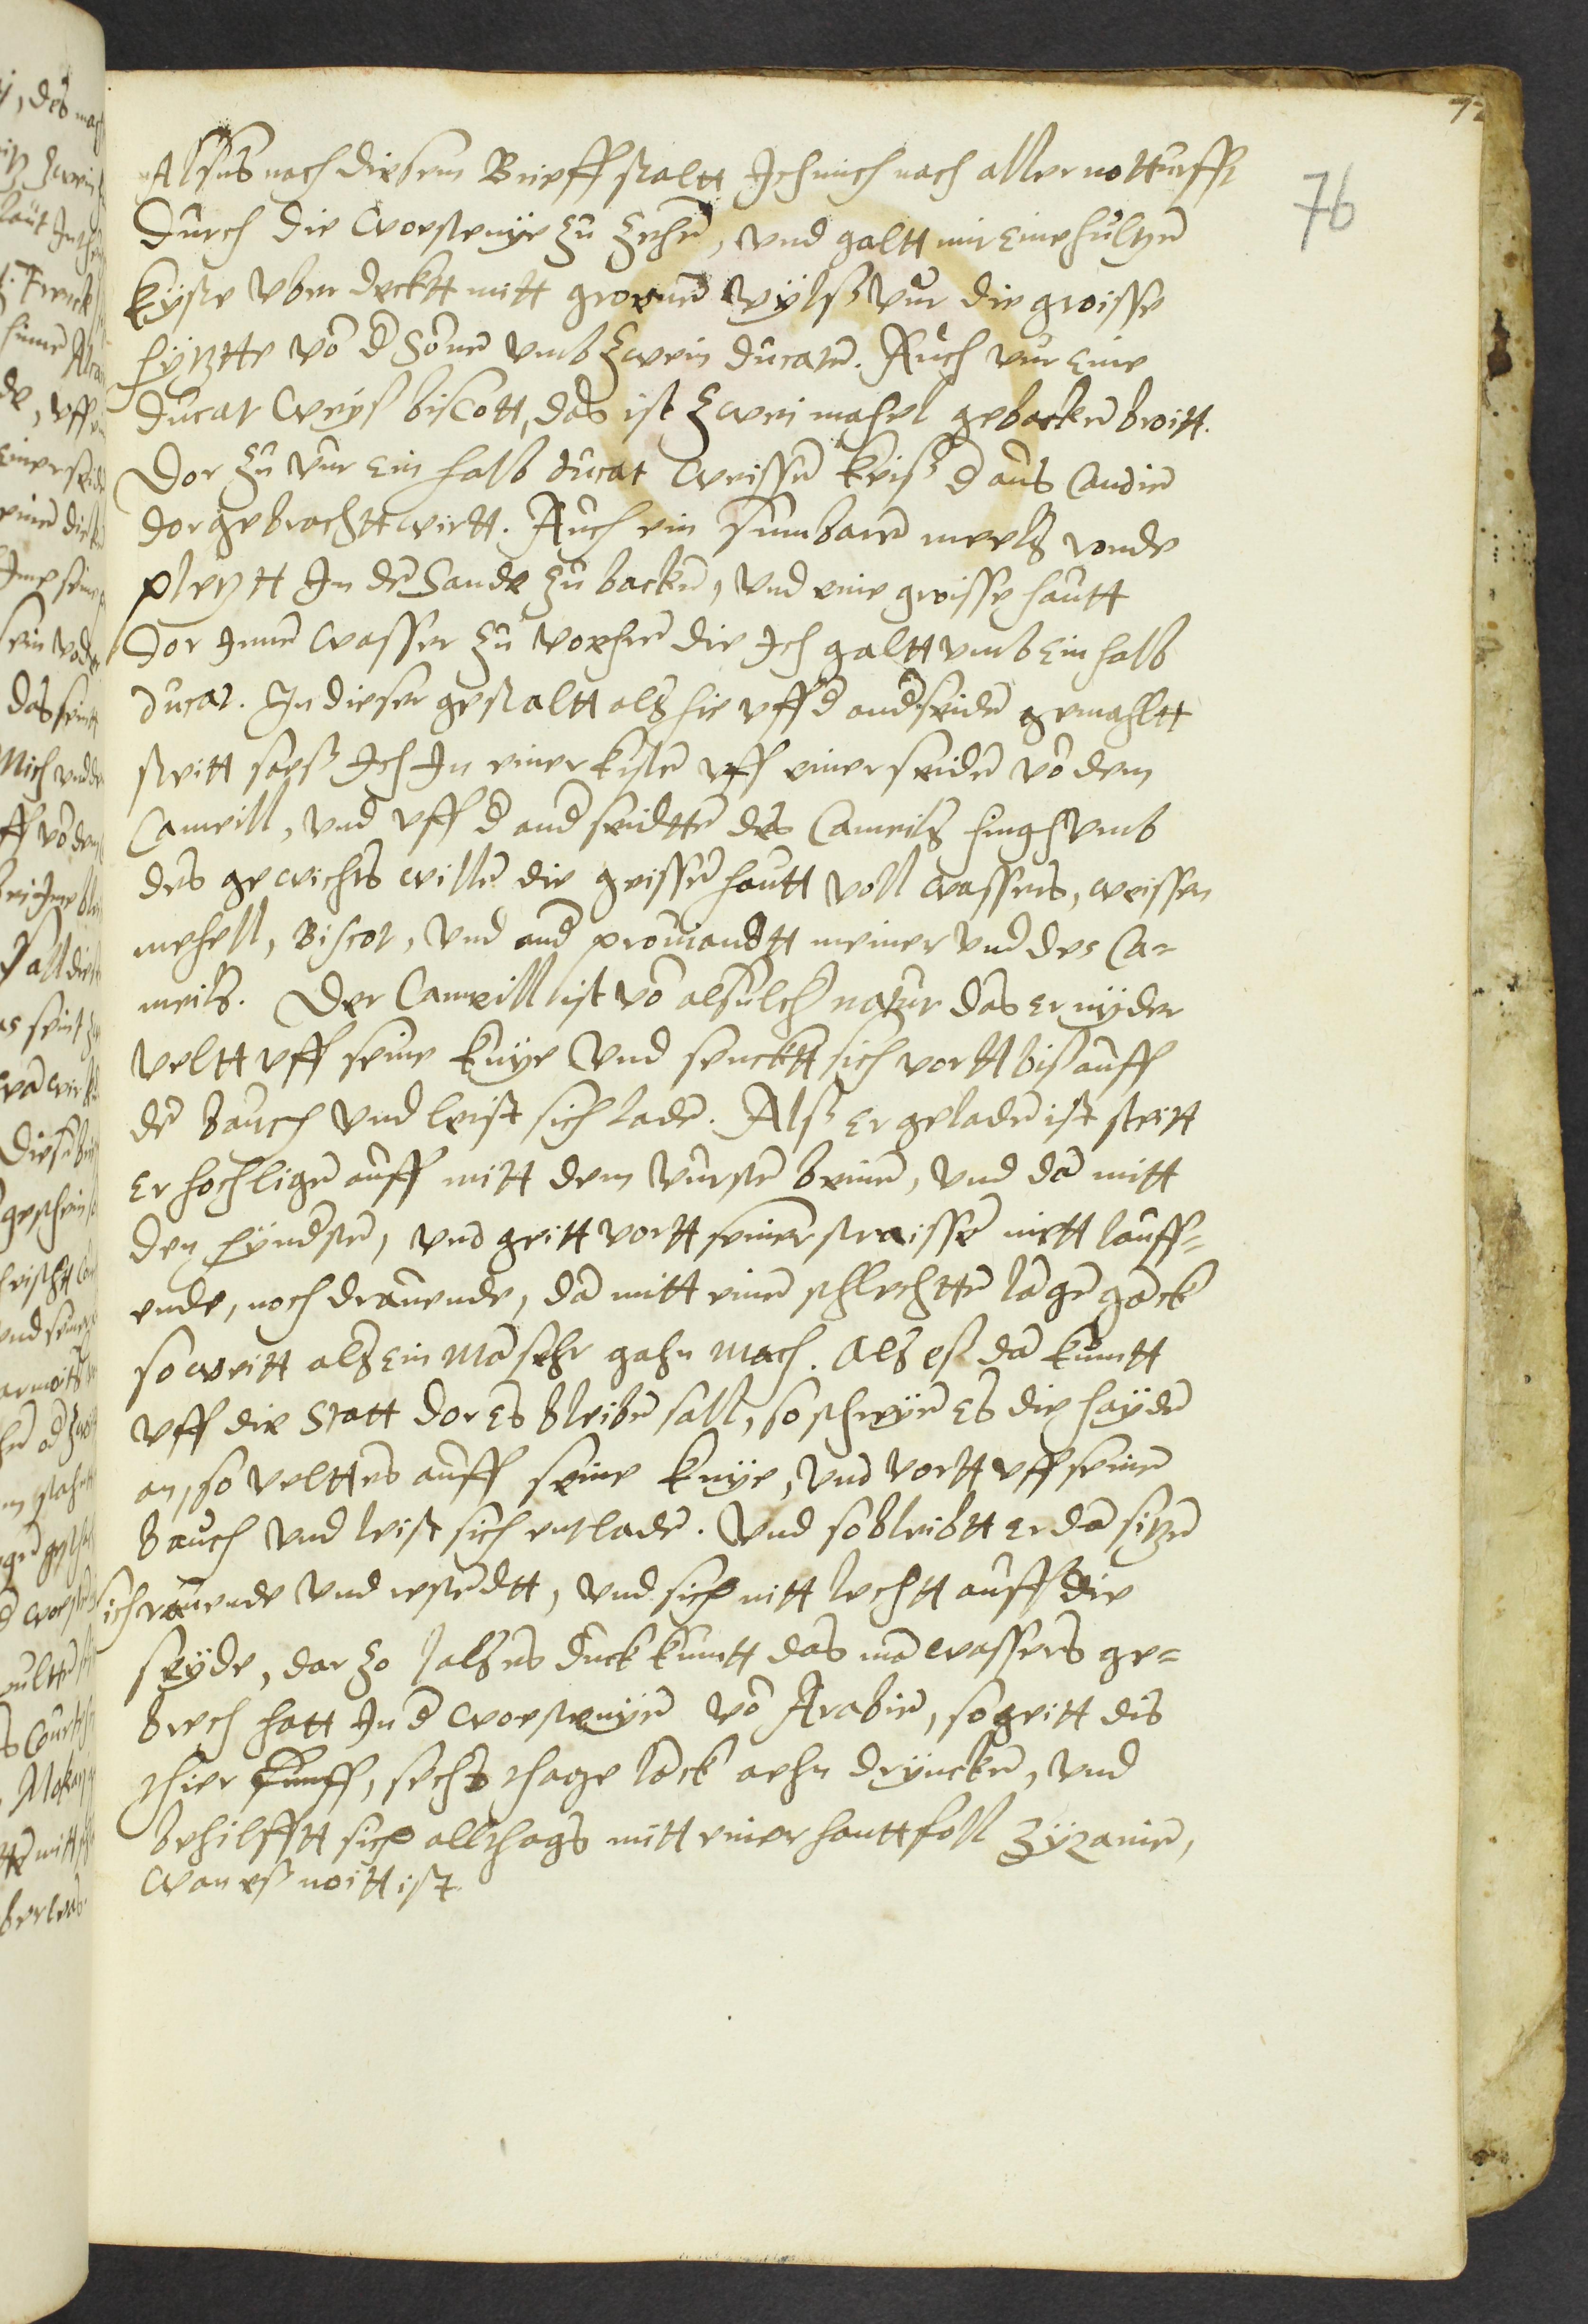 76
Alsus nach diesem Brieff staltt Ich mich nach aller notturfft
durch die woestenye zu zehen, und galtt mir eine hultzen
kyste uber decktt mitt groenen vylsz vur die groisse
hytztte vō d Sonnē umb zwein ducatē. Auch vur eine
ducat weys biscott, das ist zwei mahel gebackē broitt.
Dor zu vur ein halb ducat weissē keisz d aus Candiē
dor gebrachtt wirtt. Auch ein sumbarē meels vonde
pleytt In dē Sande zu backē, und eine groisse hautt
dor Innē wasser zu voerhē die Ich galtt umb ein halb
ducat. In dieser gestaltt als hie uff d and seidē gemahltt
steitt saesz Ich In einer kistē uff einer seidē vō dem
Cameill, und uff d and seidttē des Cameils hingh umb
des gewichts willē die geissen hautt voll wassers, weissen
mehell, Biscot, und and provianddtt meiner und des Ca=
meils. Der Cameill ist vō alsulch natur das er nyder
veltt uff seine knye und sencktt sich vortt bisz auff
dē bauch und leist sich ladē. Alsz er geladē ist steitt
er hochligē auff mitt dem vurstē beinē, und dā mitt
den hyndstē, und geitt vortt seiner straissē nitt lauff=
ende, noch dravende, dā mitt einē schlechttē lāgē gāck
so weitt als ein Mā sehr gahn mach. Als esz dā kumtt
uff die Statt dor es bleibē sall, so schreyē es die heydē
an, so velttes auff seine knye, und vortt uff seinē
bauch und leist sich entladē. Und so bleibtt er dā sitzē
sich rauende und restedtt, und sich nitt lechtt auff die
seyde, dar zo als es duck kumtt das mā wassers ge=
brech hatt In d woestenyē vō Arabiē, so geitt dis
thier funff, sechs thage lāck aehn dryncken, und
behilfftt sich all thags mitt einer hautt foll Zyzaniē,
wan esz noitt ist